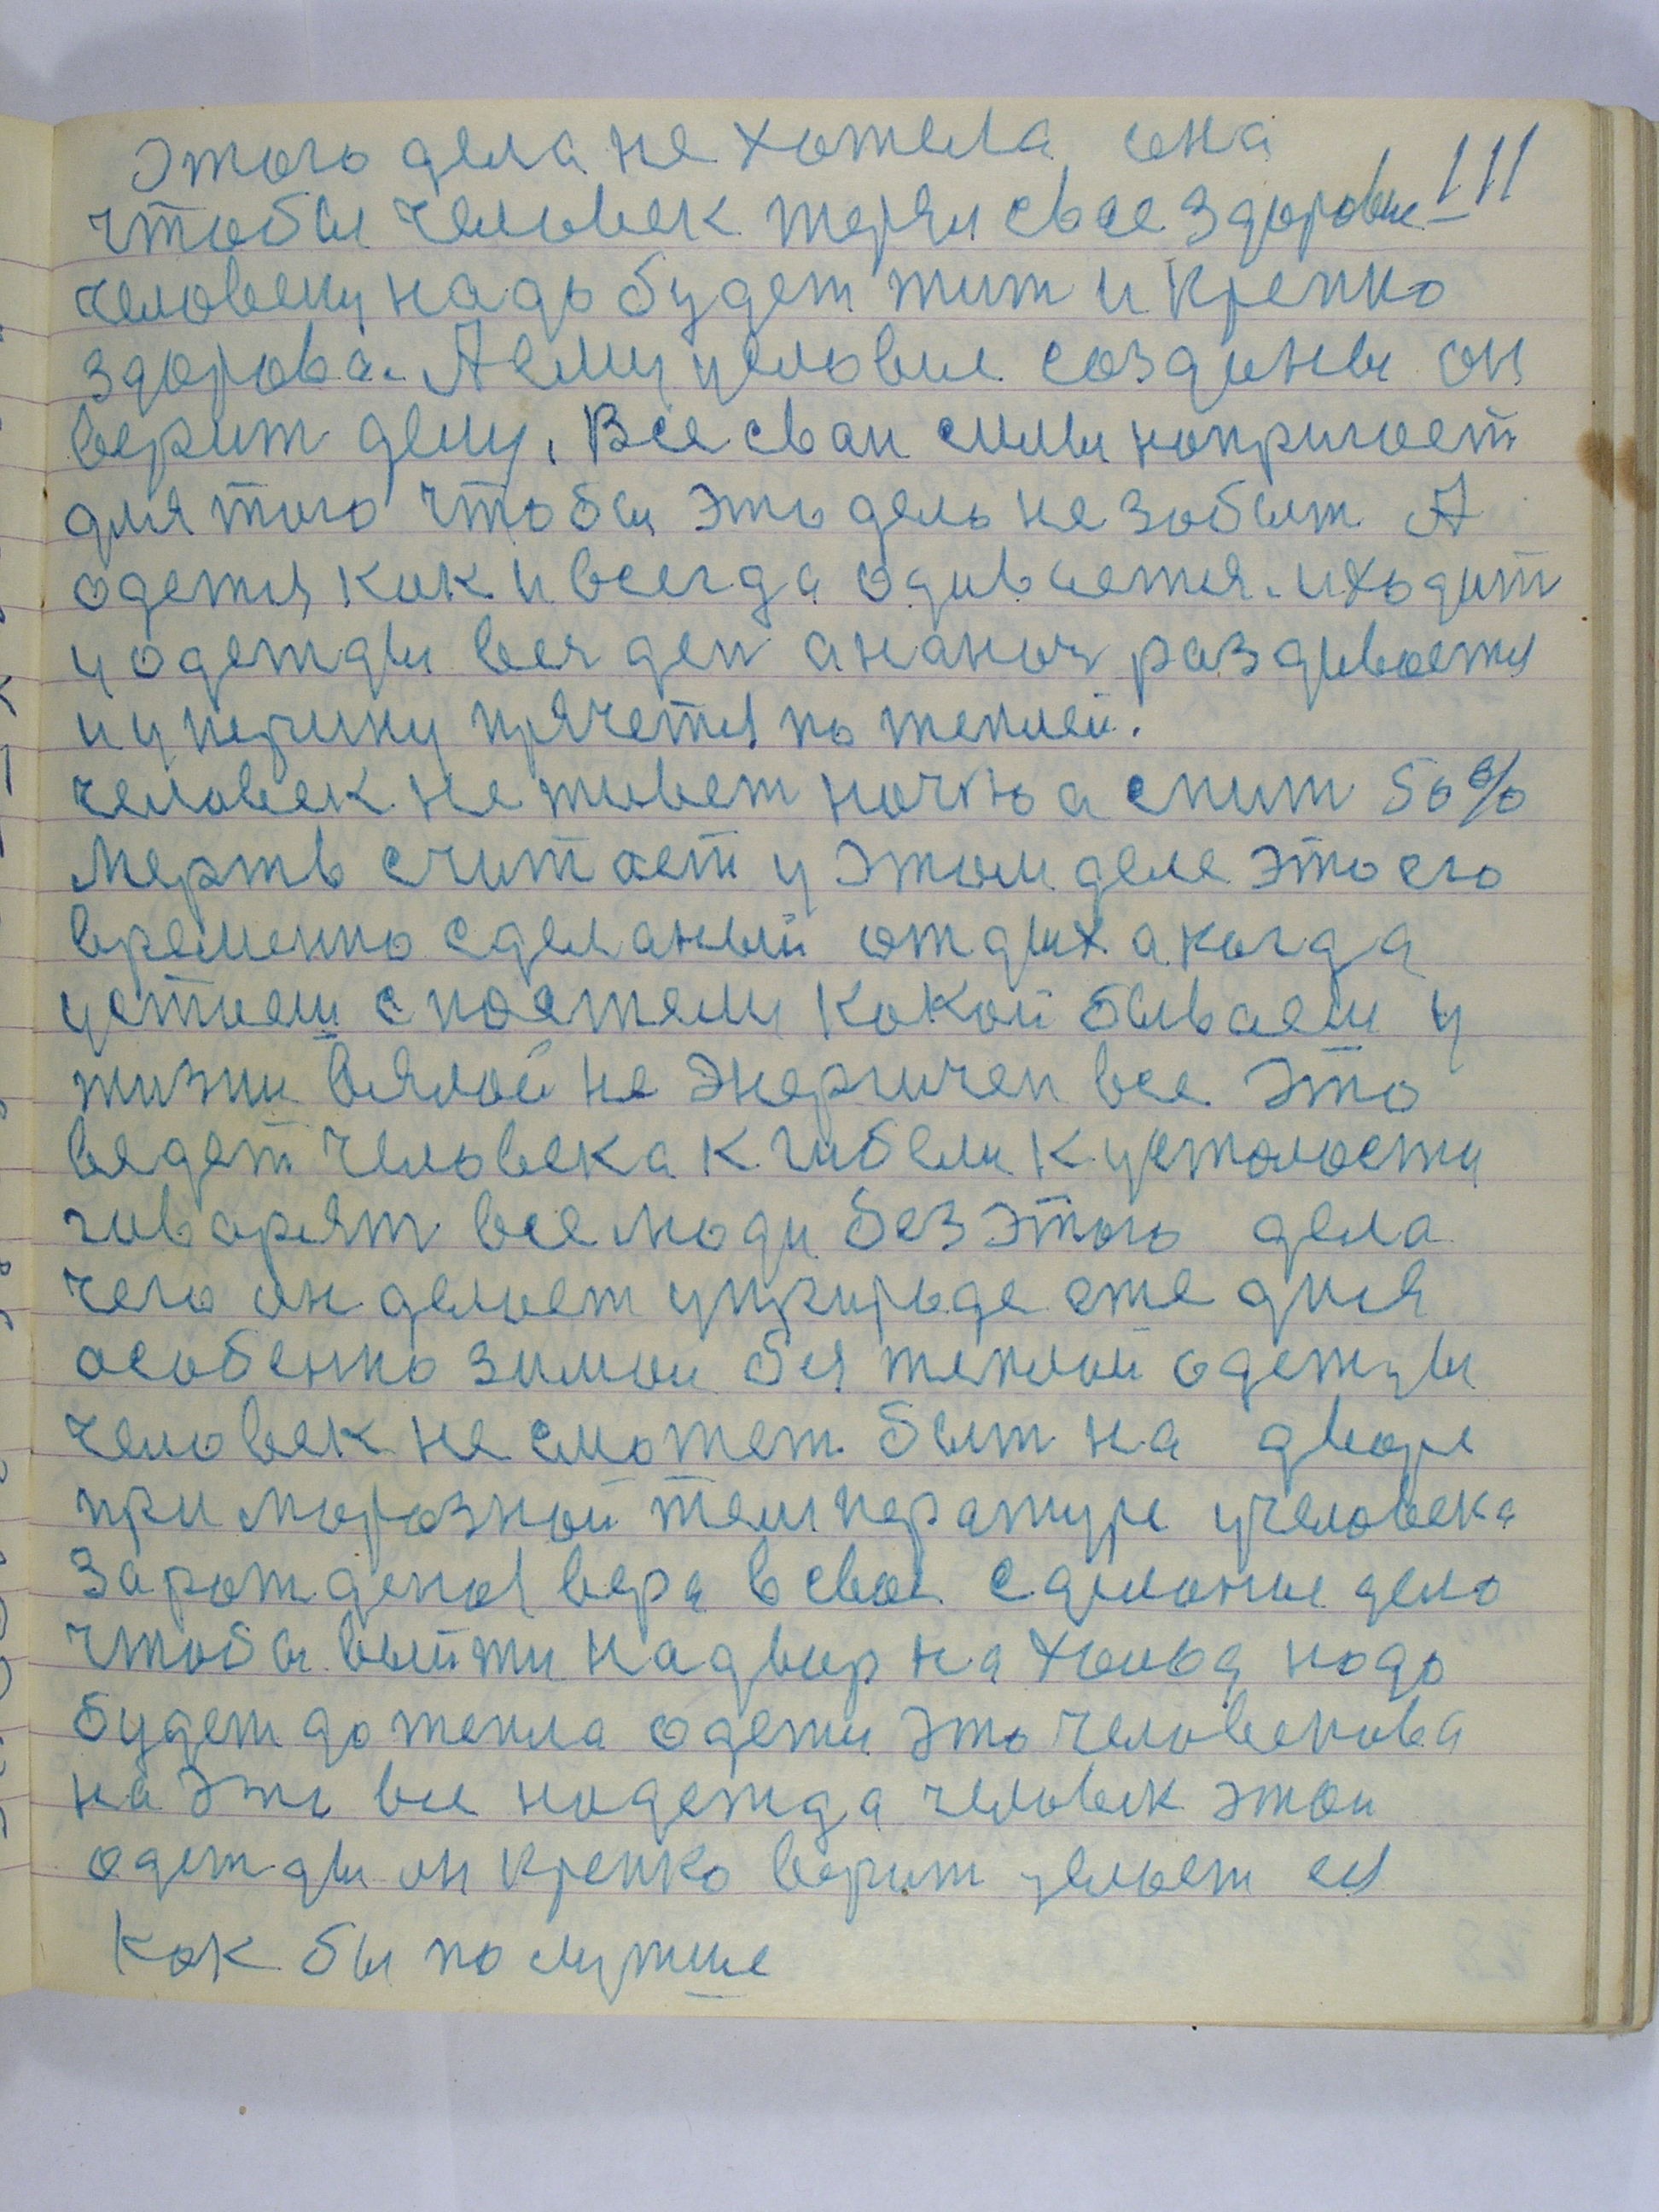 этого дела не хотела она
111
чтобы человек терял свае здоровие
человеку надо будет жит и крепко
здорова. А ему условие создины он
верит делу. Все сваи силы напригает
для того чтобы это дело не забыт А
одется как и всегда одивается. и ходит
у одежды вес ден а наноч раздивается
и у перину прячется по теплей.
человек не живет ночъю а спит 50%
мертв считает у этом деле это его
временно сделаный отдых а когда
устиеш с постели какой бываеш у
жизни вялой не энергичен все это
ведет человека к гибели к усталости
говарят все люди без этого дела
чего он делает у природе сте дися
особенно зимои без теплой одежды
человек не сможет быт на дворе
при морозной температуре у человека
зарождена вера в свое сделоные дело
чтобы выйти надвор на холод надо
будет до тепла одети это человекова
на это все надежда человек этои
одежды он крепко верит делает ея
как бы по лутше